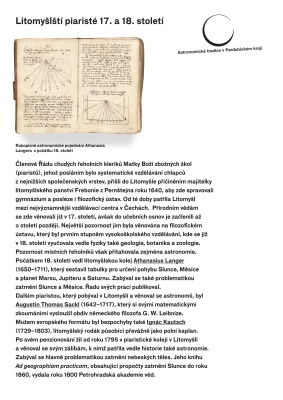 Litomyšlští piaristé 17. a 18. století
Astronomické tradice v Pardubickém kraji
Rukopisné astronomické pojednání Athanasia
Langera z počátku 18. století
Členové Řádu chudých řeholních kleriků Matky Boží zbožných škol
(piaristů), jehož posláním bylo systematické vzdělávání chlapců
z nejnižších společenských vrstev, přišli do Litomyšle přičiněním majitelky
litomyšlského panství Frebonie z Pernštejna roku 1640, aby zde spravovali
gymnázium a posléze i filozofický ústav. Od té doby patřila Litomyšl
mezi nejvýznamnější vzdělávací centra v Čechách. Přírodním vědám
se zde věnovali již v 17. století, avšak do učebních osnov je začlenili až
o století později. Největší pozornost jim byla věnována na filozofickém
ústavu, který byl prvním stupněm vysokoškolského vzdělávání, kde se již
v 18. století vyučovala vedle fyziky také geologie, botanika a zoologie.
Pozornost místních řeholníků však přitahovala zejména astronomie.
Počátkem 18. století vedl litomyšlskou kolej Athanasius Langer
(1650–1711), který sestavil tabulky pro určení pohybu Slunce, Měsíce
a planet Marsu, Jupiteru a Saturnu. Zabýval se také problematikou
zatmění Slunce a Měsíce. Řadu svých prací publikoval.
Dalším piaristou, který pobýval v Litomyšli a věnoval se astronomii, byl
Augustin Thomas Sackl (1642–1717), který si svými matematickými
zkoumáními vysloužil obdiv německého filozofa G. W. Leibnize.
Mužem evropského formátu byl bezpochyby také Ignác Kautsch
(1729–1803), litomyšlský rodák působící převážně jako polní kaplan.
Po svém penzionování žil od roku 1795 v piaristické koleji v Litomyšli
a věnoval se svým zálibám, k nimž patřila vedle historie také astronomie.
Zabýval se hlavně problematikou zatmění nebeských těles. Jeho knihu
Ad geographiam practicam, obsahující propočty zatmění Slunce do roku
1860, vydala roku 1800 Petrohradská akademie věd.